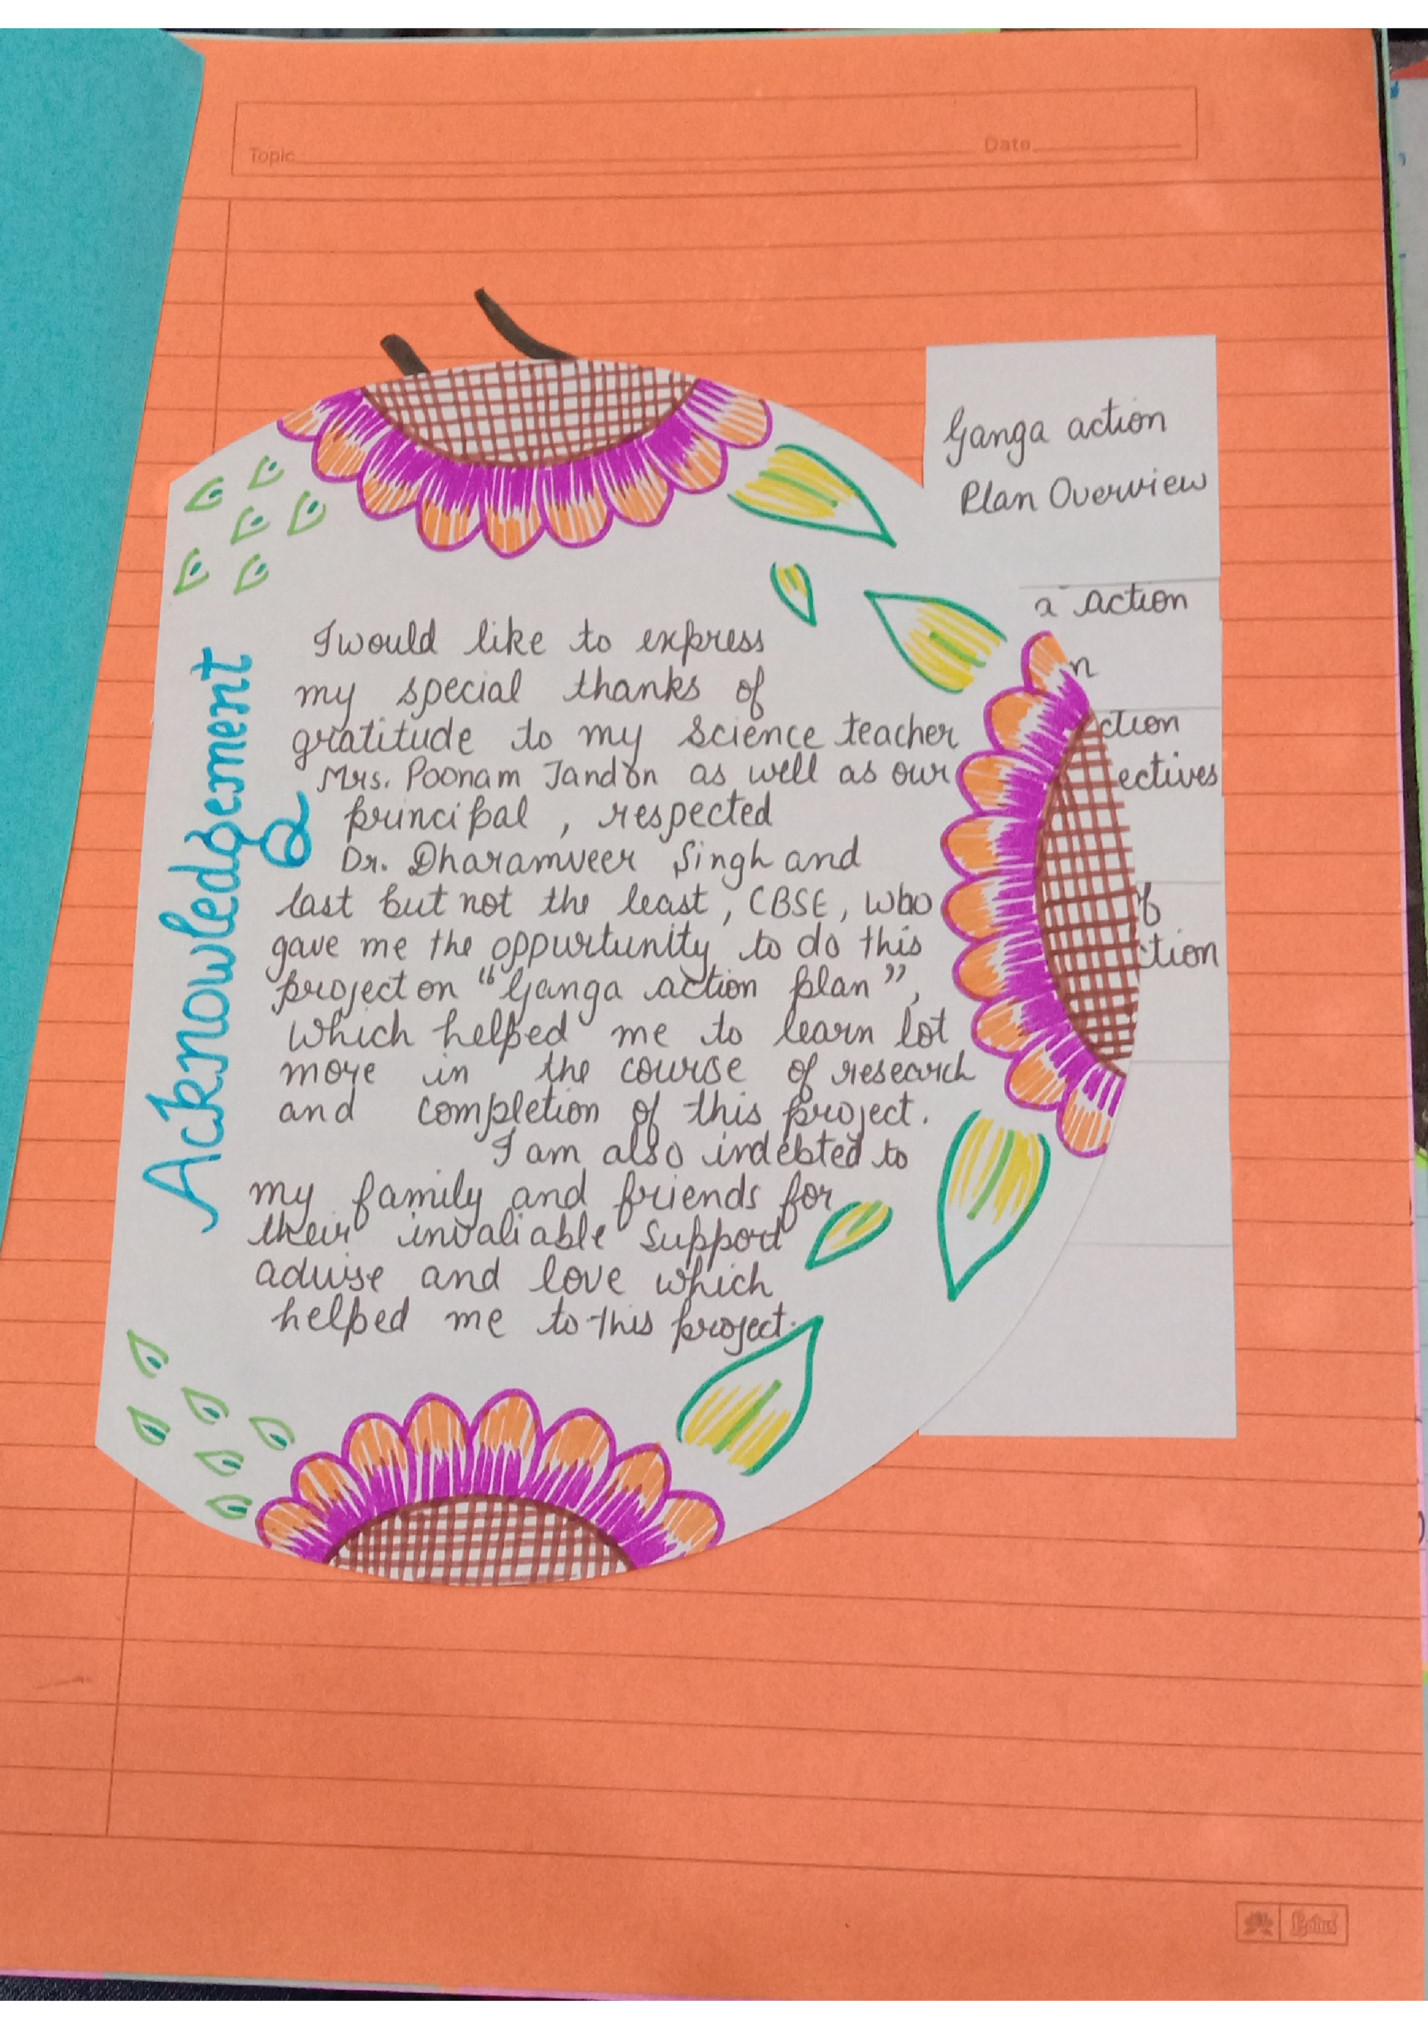 Topic
Date
Ganga action
Plan Overview
a action
n
ction
ectives
of
ction
Acknowledgement
I would like to express
my special thanks of
gratitude to my Science teacher
Mrs. Poonam Tandon as well as our
principal, respected
Dr. Dharamveer Singh and
last but not the least, CBSE, who
gave me the oppurtunity to do this
project on "Ganga action plan",
which helped me to learn lot
more in the course of research
and completion of this project.
I am also indebted to
my family and friends for
their invaliable support
advise and love which
helped me to this project.
Lotus